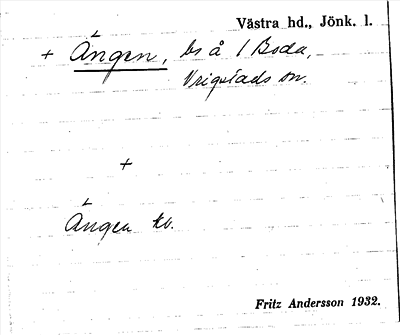 Västra hd., Jönk. l.
+ Ängen, bs å 1 Boda,
Vrigstads sn.
+
Ängen tv.
Fritz Andersson 1932.